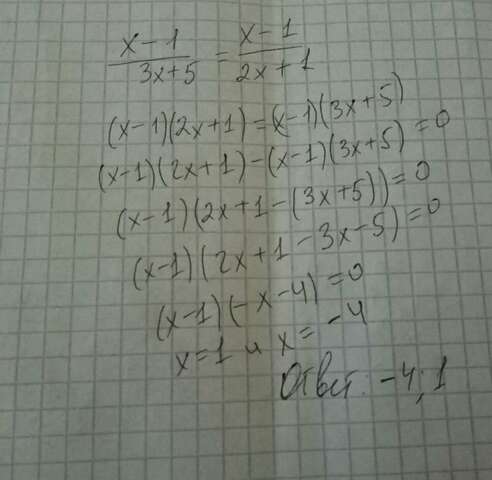 x-1/3x+5 = x-1/2x+1
(x-1)(2x+1)=(x-1)(3x+5)
(x-1)(2x+1)-(x-1)(3x+5)=0
(x-1)(2x+1-(3x+5))=0
(x-1)(2x+1-3x-5)=0
(x-1)(-x-4)=0
x=1 и x=-4
Ответ: -4; 1